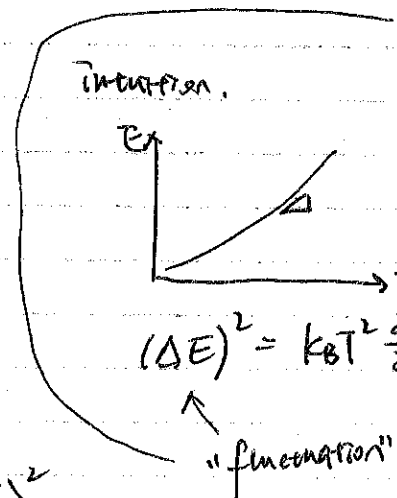 intuition.
E
Δ
(ΔE)² = k_B T²
"fluctuation"
)²